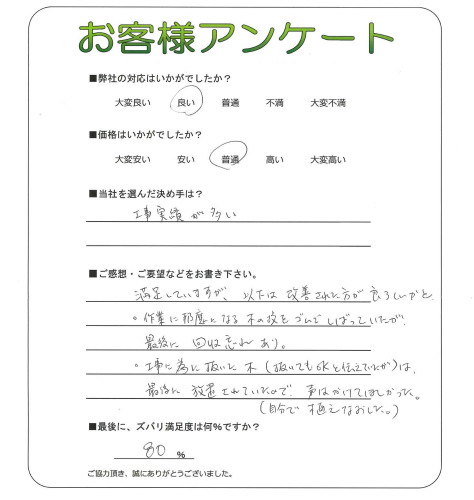 お客様アンケート
■弊社の対応はいかがでしたか？
大変良い 良い 普通 不満 大変不満
■価格はいかがでしたか？
大変安い 安い 普通 高い 大変高い
■当社を選んだ決め手は？
工事実績が多い
■ご感想・ご要望などをお書き下さい。
満足していますが、以下は改善された方が良ろしいかと
・作業に邪魔になる木の枝をゴムでしばっていたが、
最後に回収忘れあり。
・工事に為に抜いた木（抜いてもOKと伝えていたが）は、
最後に放置されていたので、声はかけてほしかった。
（自分で植えなおした。）
■最後に、ズバリ満足度は何%ですか？
80 %
ご協力頂き、誠にありがとうございました。